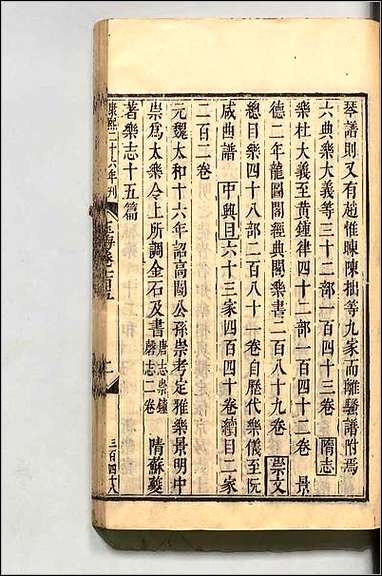 琴譜則又有趙惟暕陳拙等九家而離騷譜附焉
六典樂大義等三十二部一百四十三卷 隋志
樂杜大義至黃鍾律四十二部一百四十二卷 景
德二年龍圖閣經典閣樂書二百八十九卷 崇文
總目樂四十八部二百八十一卷自歷代樂儀至阮
咸曲譜 中興目六十三家四百四十卷續目二家
二百二卷
元魏太和十六年詔高閭公孫崇考定雅樂景明中
崇爲太樂令上所調金石及書 唐志崇鍾磬志二卷 隋蘇夔
著樂志十五篇
康熙二十六年刊
三百四十八